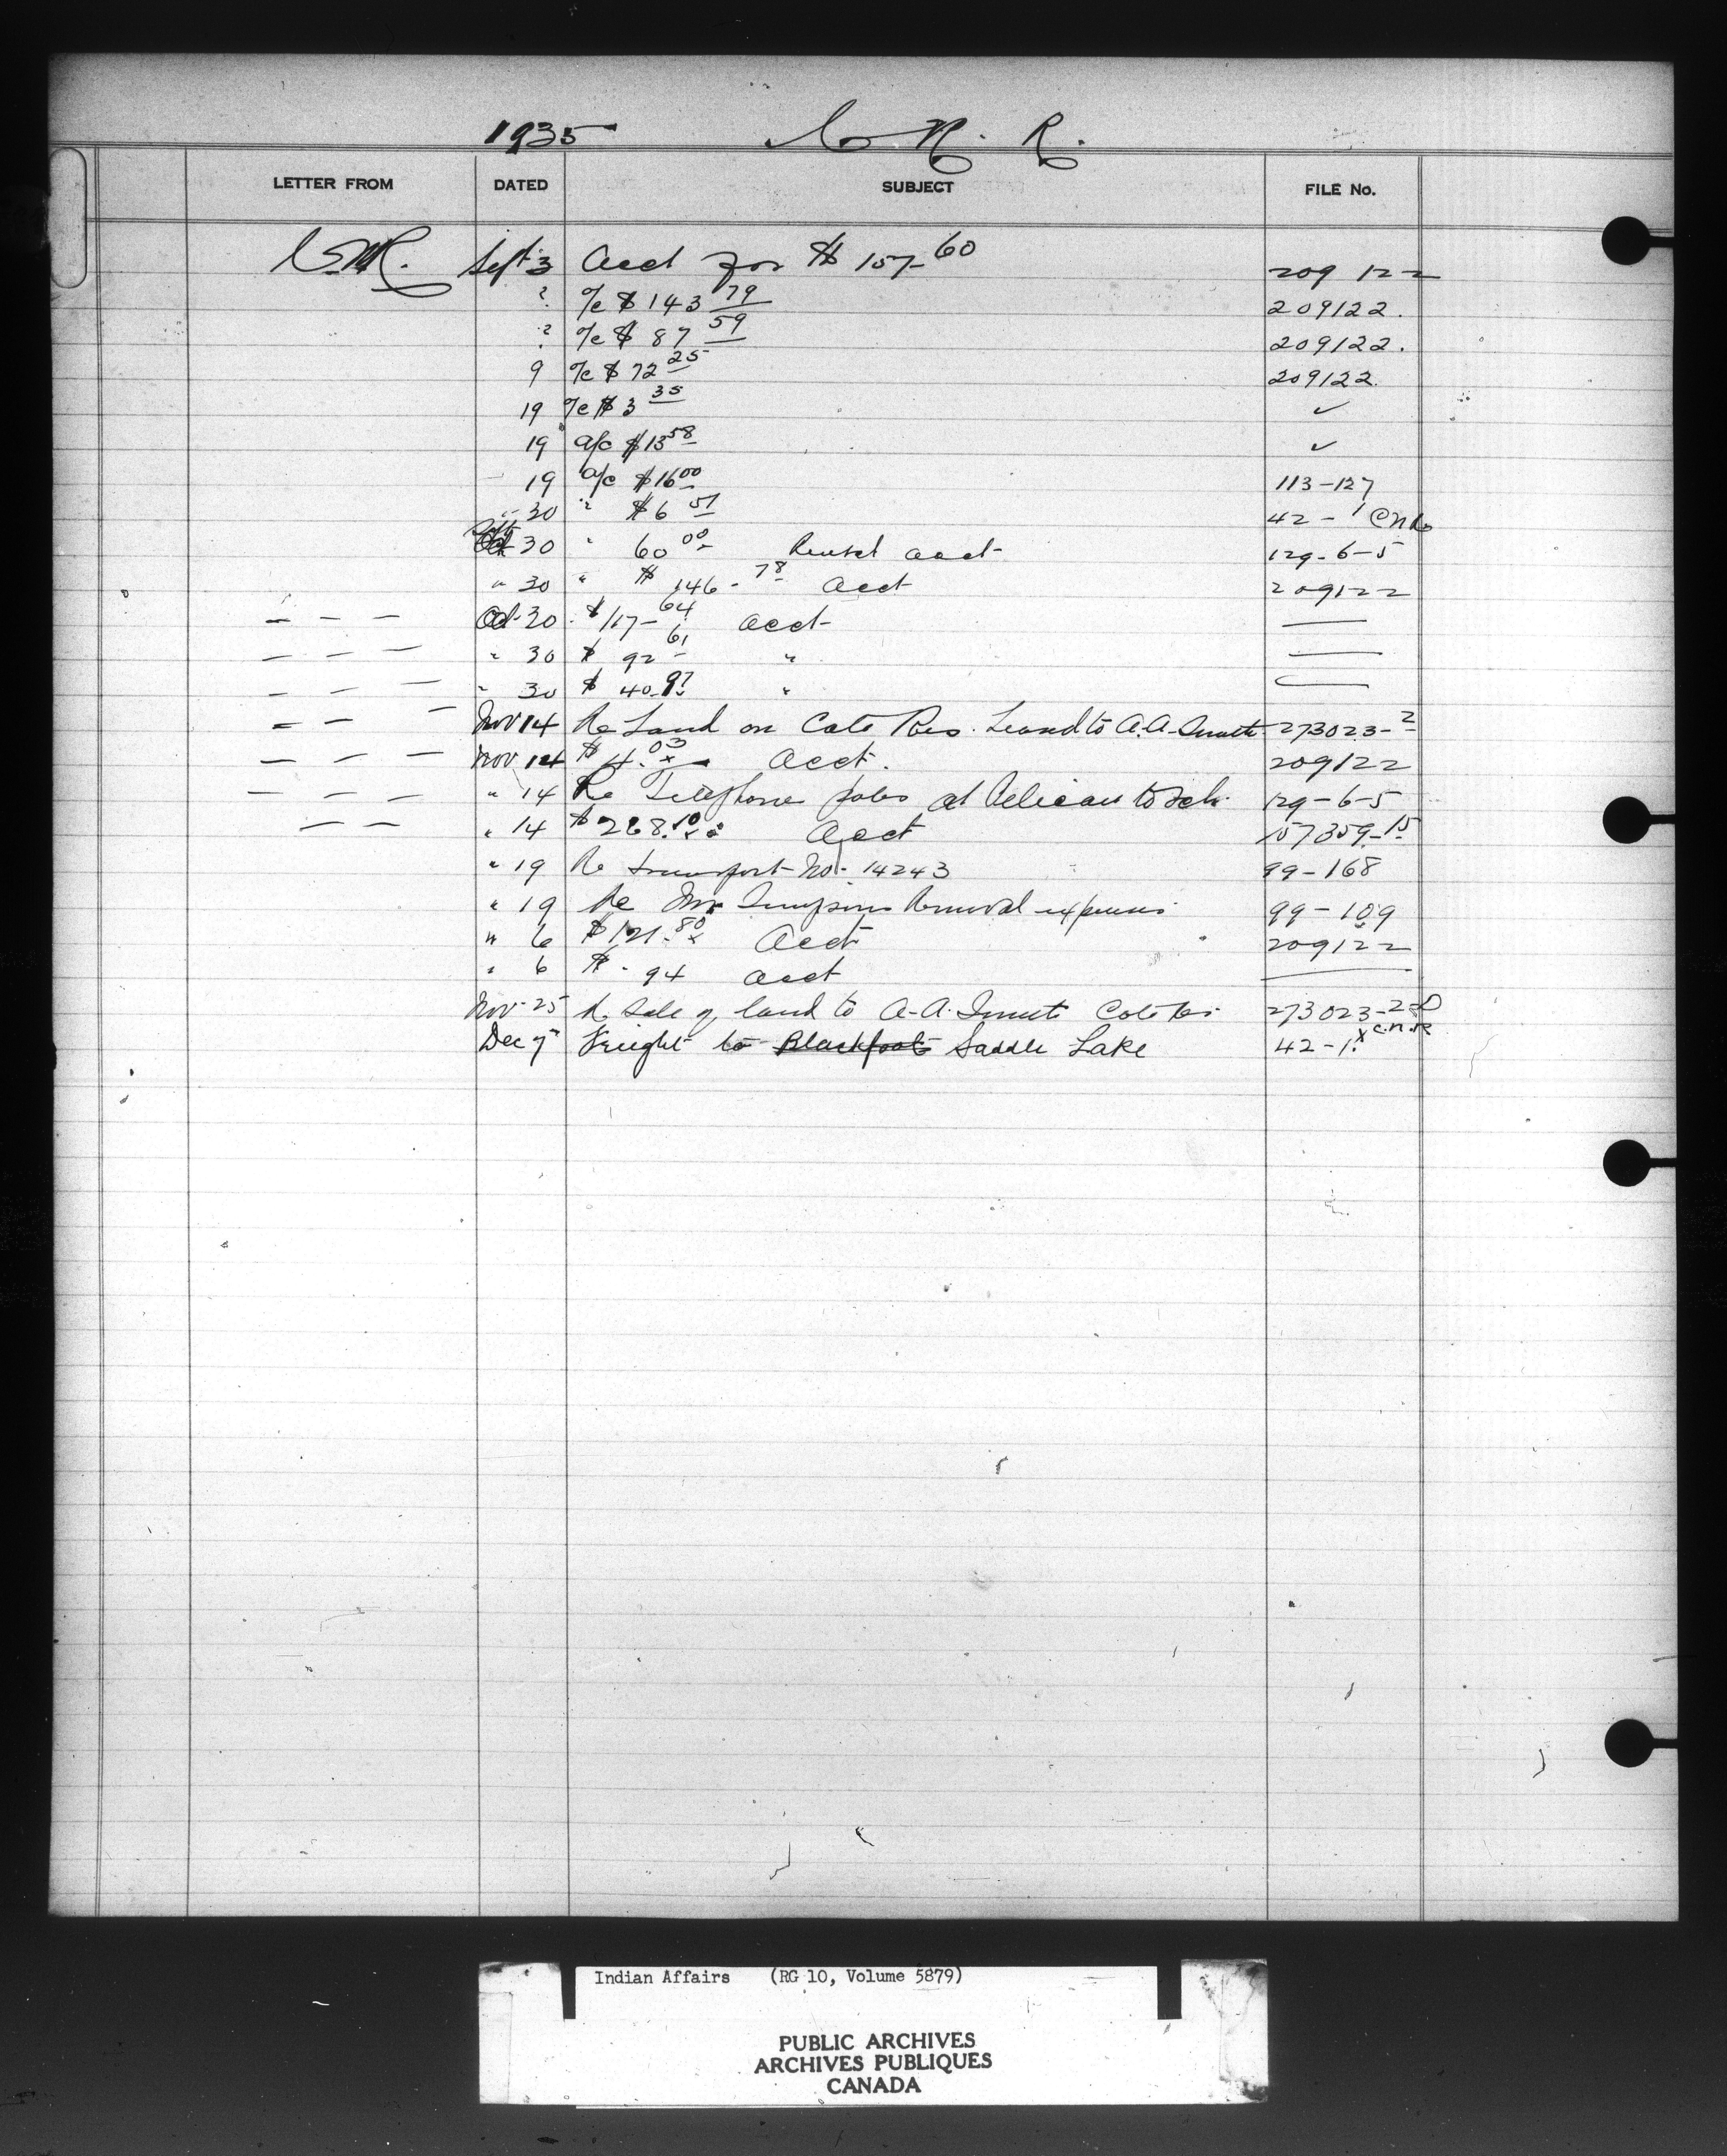 1935 C. N. R.
LETTER FROM DATED SUBJECT FILE No.
C.N.R. Sept 3 Acct for $ 157-60 209122
" a/c $ 143 79 209122.
" a/c $ 87 59 209122.
9 a/c $ 72 25 209122.
19 a/c $ 3 35 ✓
19 a/c $13 58 ✓
19 a/c $16 00 113-127
" 30 " $6 51 42-1 CNR
Sept 30 " 60 00 Rental acct 129-6-5
" 30 " $ 146-78 Acct 209122
— — — Oct 30 $117-64 acct —
— — — " 30 $ 92-61 " —
— — — " 30 $ 40.97 " —
— — — Nov 14 Re Land on Cote Res. Leased to A.A. 273023-2
— — — Nov 14 $ 4.03 Acct. 209122
— — — " 14 Re Telephone poles at Pelican 129-6-5
— — " 14 $268.10 Acct 157359-15
" 19 Re transport No. 14243 99-168
" 19 Re Mr Simpsons Removal expenses 99-109
" 6 $121.80 Acct 209122
" 6 $ .94 acct —
Nov 25 Re Sale of land to A.A. Cote Res. 273023-2-D
Dec 7 Freight to Blackfoot Saddle Lake 42-1 x C.N.R
Indian Affairs (RG 10, Volume 5879)
PUBLIC ARCHIVES
ARCHIVES PUBLIQUES
CANADA